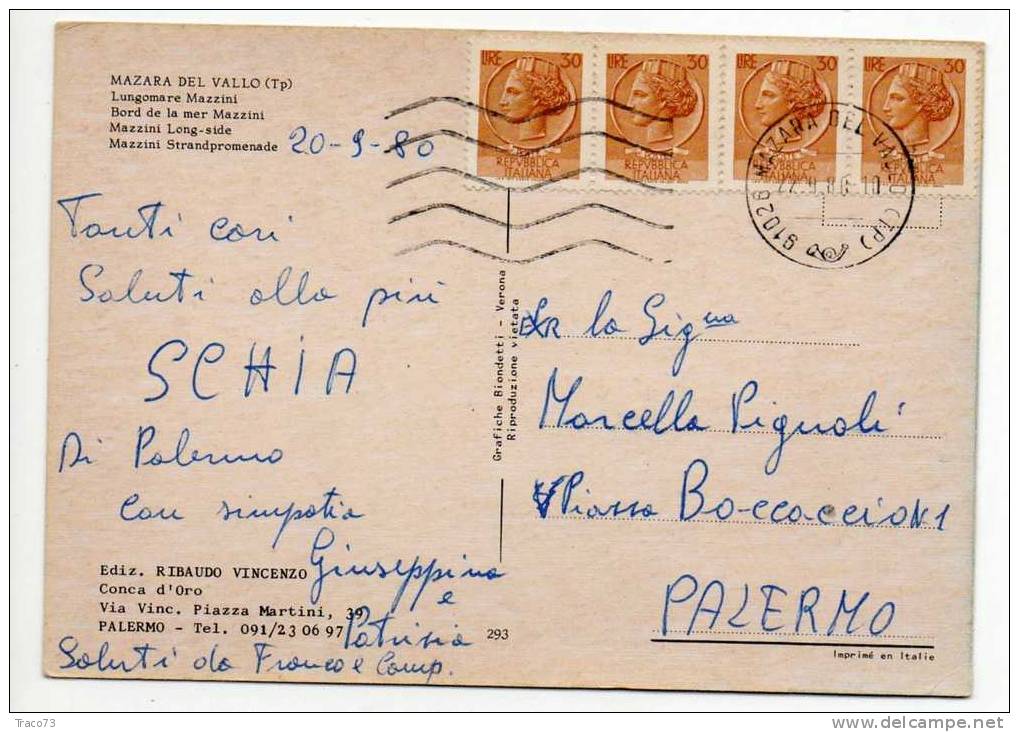 MAZARA DEL VALLO (Tp)
Lungomare Mazzini
Bord de la mer Mazzini
Mazzini Long-side
Mazzini Strandpromenade
20-9-80
LIRE 30
REPVBBLICA
ITALIANA
LIRE 30
REPVBBLICA
ITALIANA
LIRE 30
REPVBBLICA
ITALIANA
LIRE 30
REPVBBLICA
ITALIANA
91026 MAZARA DEL VALLO (TP)
Tanti cari
Saluti alla più
SCHIA
Di Palermo
con simpatia
Giuseppina
e
Patrizia
Saluti da Franco e Comp.
Ediz. RIBAUDO VINCENZO
Conca d'Oro
Via Vinc. Piazza Martini, 39
PALERMO - Tel. 091/23 06 97
293
Grafiche Biondetti - Verona
Riproduzione vietata
la Sig.na
Marcella Pignoli
Piazza Boccaccio N1
PALERMO
Imprimé en Italie
Traco73
www.delcampe.net